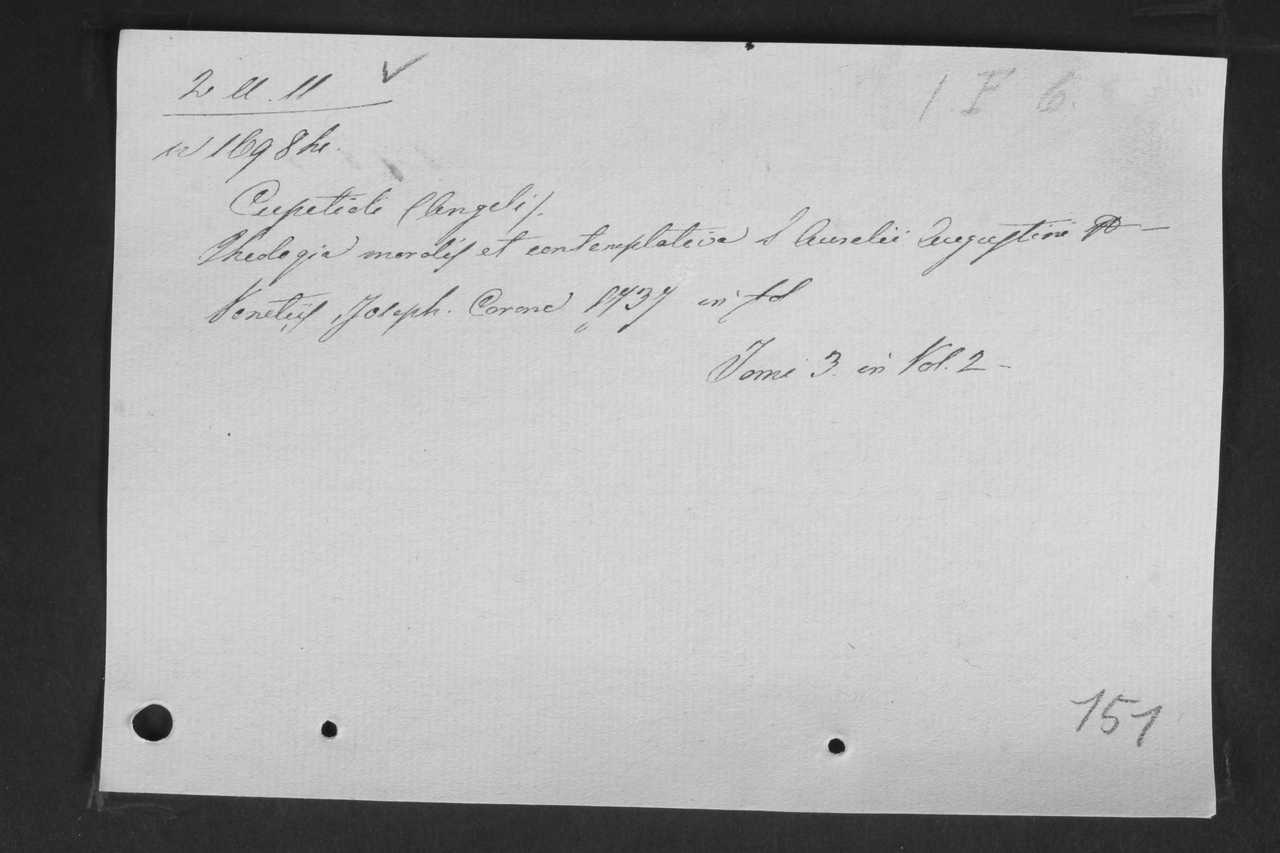 2. U. 11 ✓
1. F 6.
n 1698 he.
Cupetioli (Angeli).
Theologia moralis et contemplativa S Aurelii Augustini
Venetiis, Joseph. Corona 1737 in fol
Tomi 3. in Vol. 2 –
151